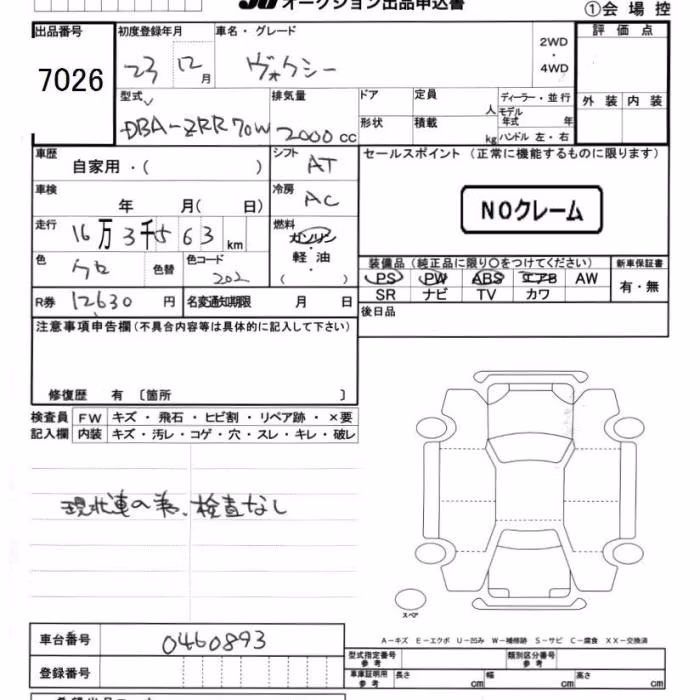 オークション出品申込書
①会場控
出品番号 初度登録年月 車名・グレード 2WD 評価点
7026 23 12月 ヴォクシー ・ 4WD
型式 排気量 ドア 定員 人 ディーラー・並行 外装 内装
DBA-ZRR70W 2000cc 形状 積載 kg モデル年式 年
ハンドル 左・右
車歴 自家用・( ) シフト AT セールスポイント(正常に機能するものに限ります)
車検 年 月( 日) 冷房 AC NOクレーム
走行 16万3千563km 燃料 ガソリン
軽油
・
( )
色 クロ 色替 色コード 202 装備品(純正品に限り○をつけてください) 新車保証書
PS PW ABS エアB AW 有・無
R券 12630円 名変通知期限 月 日 SR ナビ TV カワ
注意事項申告欄(不具合内容等は具体的に記入して下さい) 後日品
修復歴 有 〔箇所 〕
検査員 FW キズ・飛石・ヒビ割・リペア跡・×要
記入欄 内装 キズ・汚レ・コゲ・穴・スレ・キレ・破レ
現状車の為、検査なし
スペア
車台番号 0460893 A-キズ E-エクボ U-凹み W-補修跡 S-サビ C-腐食 XX-交換済
型式指定番号 参考 類別区分番号 参考
登録番号 車庫証明用 参考 長さ cm 幅 cm 高さ cm